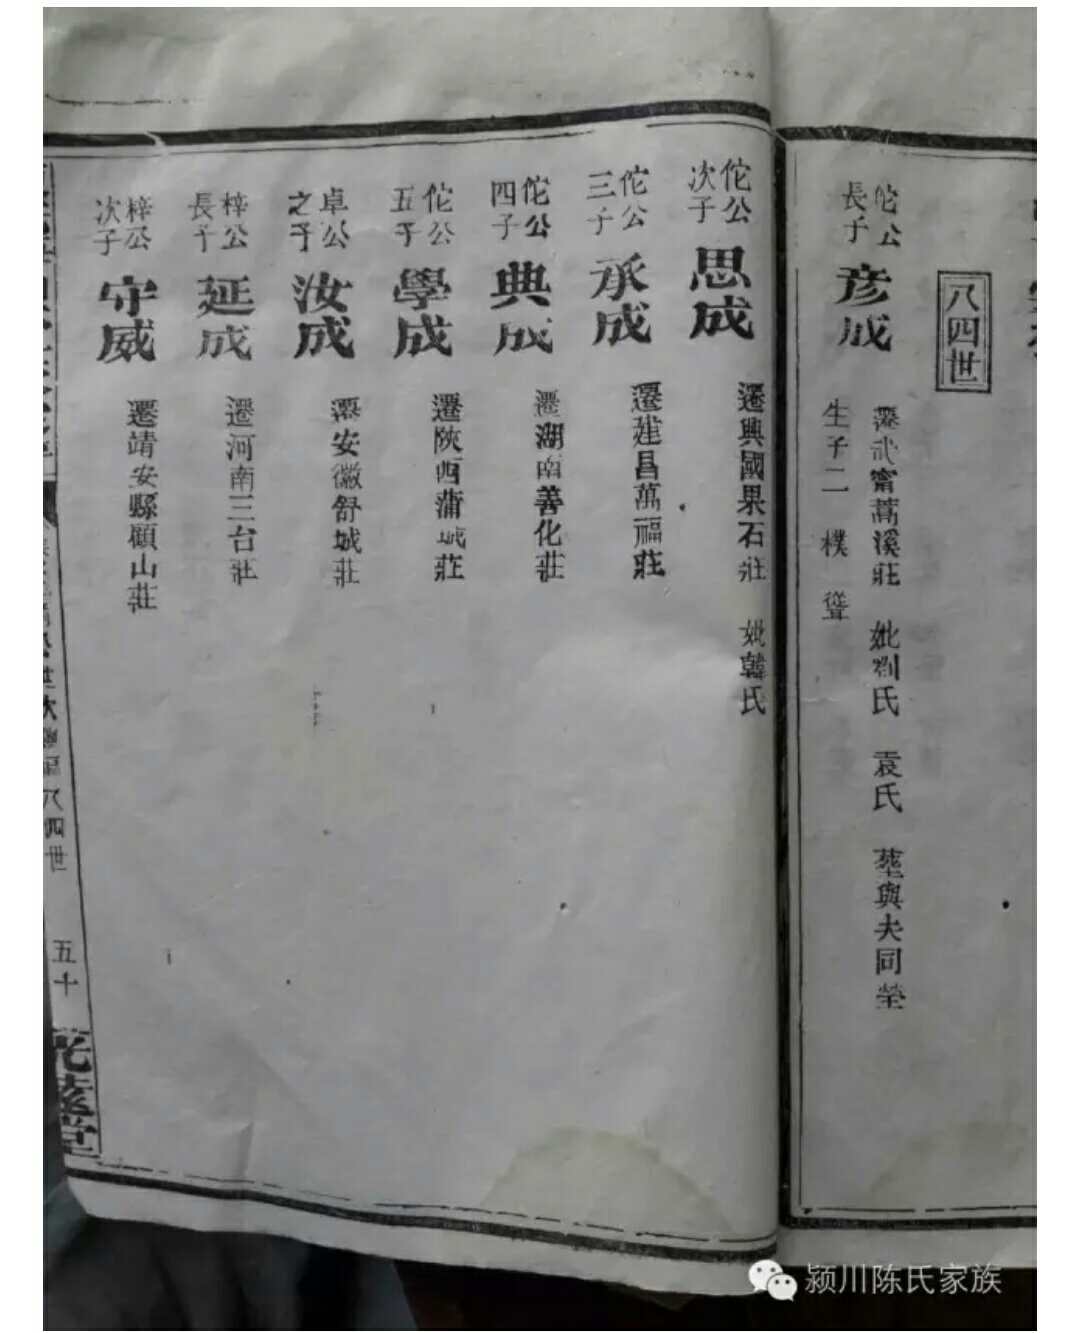 八四世
佗公
長子
彦成
遷武甯蒿溪莊 妣劉氏 袁氏 葬與夫同塋
生子二 樸 聳
佗公
次子
思成
遷興國果石莊 妣韓氏
佗公
三子
承成
遷建昌萬福莊
佗公
四子
典成
遷湖南善化莊
佗公
五子
學成
遷陝西蒲城莊
卓公
之子
汝成
遷安徽舒城莊
梓公
長子
延成
遷河南三台莊
梓公
次子
守威
遷靖安縣顧山莊
八四世
五十
颍川陈氏家族